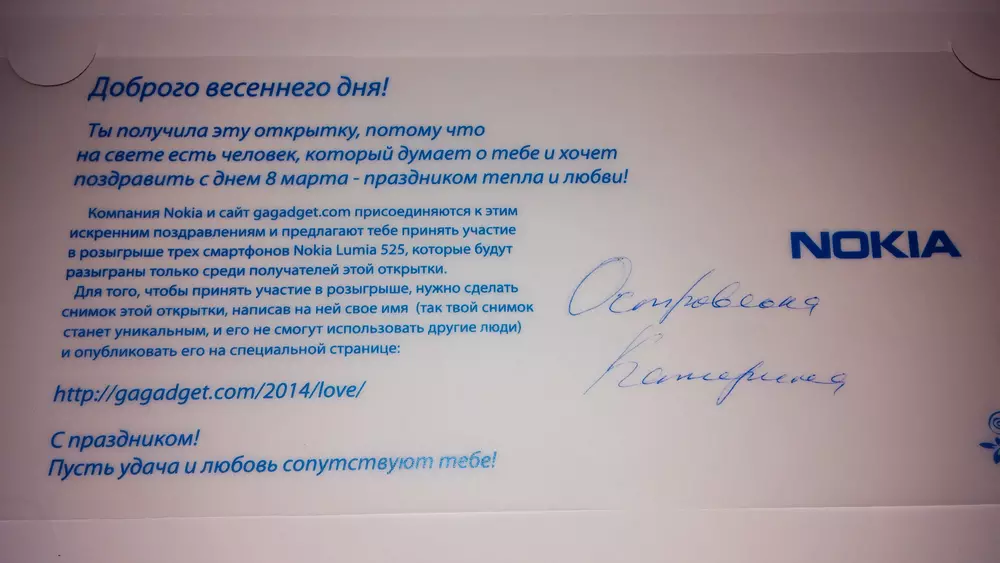 Доброго весеннего дня!
Ты получила эту открытку, потому что
на свете есть человек, который думает о тебе и хочет
поздравить с днем 8 марта - праздником тепла и любви!
Компания Nokia и сайт gagadget.com присоединяются к этим
искренним поздравлениям и предлагают тебе принять участие
в розыгрыше трех смартфонов Nokia Lumia 525, которые будут
разыграны только среди получателей этой открытки.
Для того, чтобы принять участие в розыгрыше, нужно сделать
снимок этой открытки, написав на ней свое имя (так твой снимок
станет уникальным, и его не смогут использовать другие люди)
и опубликовать его на специальной странице:
http://gagadget.com/2014/love/
С праздником!
Пусть удача и любовь сопутствуют тебе!
NOKIA
Катерина